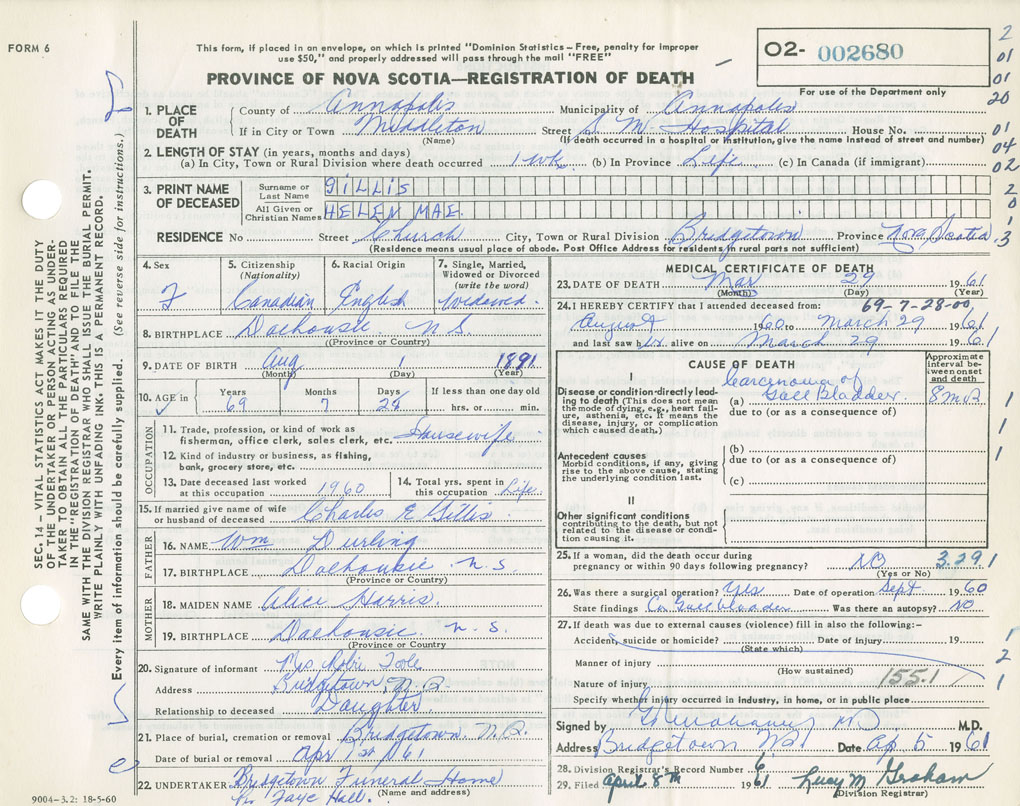 FORM 6
This form, if placed in an envelope, on which is printed "Dominion Statistics – Free, penalty for improper
use $50," and properly addressed will pass through the mail "FREE"
PROVINCE OF NOVA SCOTIA—REGISTRATION OF DEATH
O2- 002680
For use of the Department only
2
01
01
20
01
04
02
2
0
1
3
1. PLACE OF DEATH { County of Annapolis Municipality of Annapolis
If in City or Town Middleton Street S M Hospital House No.
(Name) (If death occurred in a hospital or institution, give the name instead of street and number)
2. LENGTH OF STAY (in years, months and days)
(a) In City, Town or Rural Division where death occurred 1 wk. (b) In Province Life (c) In Canada (if immigrant)
3. PRINT NAME OF DECEASED { Surname or Last Name GILLIS
All Given or Christian Names HELEN MAE.
RESIDENCE No Street Church City, Town or Rural Division Bridgetown Province Nova Scotia
(Residence means usual place of abode. Post Office Address for residents in rural parts not sufficient)
4. Sex F
5. Citizenship (Nationality) Canadian
6. Racial Origin English
7. Single, Married, Widowed or Divorced (write the word) Widowed
8. BIRTHPLACE Dalhousie N.S.
(Province or Country)
9. DATE OF BIRTH Aug 1 1891
(Month) (Day) (Year)
10. AGE in Years 69 Months 7 Days 28 If less than one day old hrs. or min.
OCCUPATION
11. Trade, profession, or kind of work as
fisherman, office clerk, sales clerk, etc. Housewife
12. Kind of industry or business, as fishing,
bank, grocery store, etc.
13. Date deceased last worked at this occupation 1960 14. Total yrs. spent in this occupation Life
15. If married give name of wife or husband of deceased Charles E Gillis
FATHER
16. NAME Wm Durling
17. BIRTHPLACE Dalhousie N.S.
(Province or Country)
MOTHER
18. MAIDEN NAME Alice Harris.
19. BIRTHPLACE Dalhousie N.S.
(Province or Country
20. Signature of informant Mrs Robie Toole
Address Bridgetown, N.S.
Relationship to deceased Daughter
21. Place of burial, cremation or removal Bridgetown N.S.
Date of burial or removal Apr 1st 1961
22. UNDERTAKER Bridgetown Funeral Home
(Name and address)
Faye Hall.
9004—3.2: 18-5-60
MEDICAL CERTIFICATE OF DEATH
23. DATE OF DEATH Mar 29 1961
(Month) (Day) (Year)
24. I HEREBY CERTIFY that I attended deceased from: 69-7-28-00
August 1960 to March 29 1961
and last saw her alive on March 29 1961
CAUSE OF DEATH
Approximate interval between onset and death
I
Disease or condition directly leading to death (This does not mean the mode of dying, e.g., heart failure, asthenia, etc. It means the disease, injury, or complication which caused death.)
(a) Carcinoma of Gall Bladder 8 mos
due to (or as a consequence of)
Antecedent causes
Morbid conditions, if any, giving rise to the above cause, stating the underlying condition last.
(b)
due to (or as a consequence of)
(c)
II
Other significant conditions
contributing to the death, but not related to the disease or condition causing it.
25. If a woman, did the death occur during
pregnancy or within 90 days following pregnancy? NO 3291
(Yes or No)
26. Was there a surgical operation? Yes Date of operation Sept 1960
State findings Ca Gall bladder Was there an autopsy? NO
27. If death was due to external causes (violence) fill in also the following:–
Accident, suicide or homicide? Date of injury 19
(State which)
Manner of injury
(How sustained)
Nature of injury 155.1
Specify whether injury occurred in industry, in home, or in public place
Signed by M.D.
Address Bridgetown NS Date Ap 5 1961
28. Division Registrar's Record Number 6
29. Filed April 8th 1961 Lucy M Graham
(Division Registrar)
1
1
1
1
1
2
1
SEC. 14 – VITAL STATISTICS ACT MAKES IT THE DUTY
OF THE UNDERTAKER OR PERSON ACTING AS UNDER-
TAKER TO OBTAIN ALL THE PARTICULARS REQUIRED
IN THE "REGISTRATION OF DEATH" AND TO FILE THE
SAME WITH THE DIVISION REGISTRAR WHO SHALL ISSUE THE BURIAL PERMIT.
WRITE PLAINLY WITH UNFADING INK. THIS IS A PERMANENT RECORD.
Every item of information should be carefully supplied. (See reverse side for instructions.)